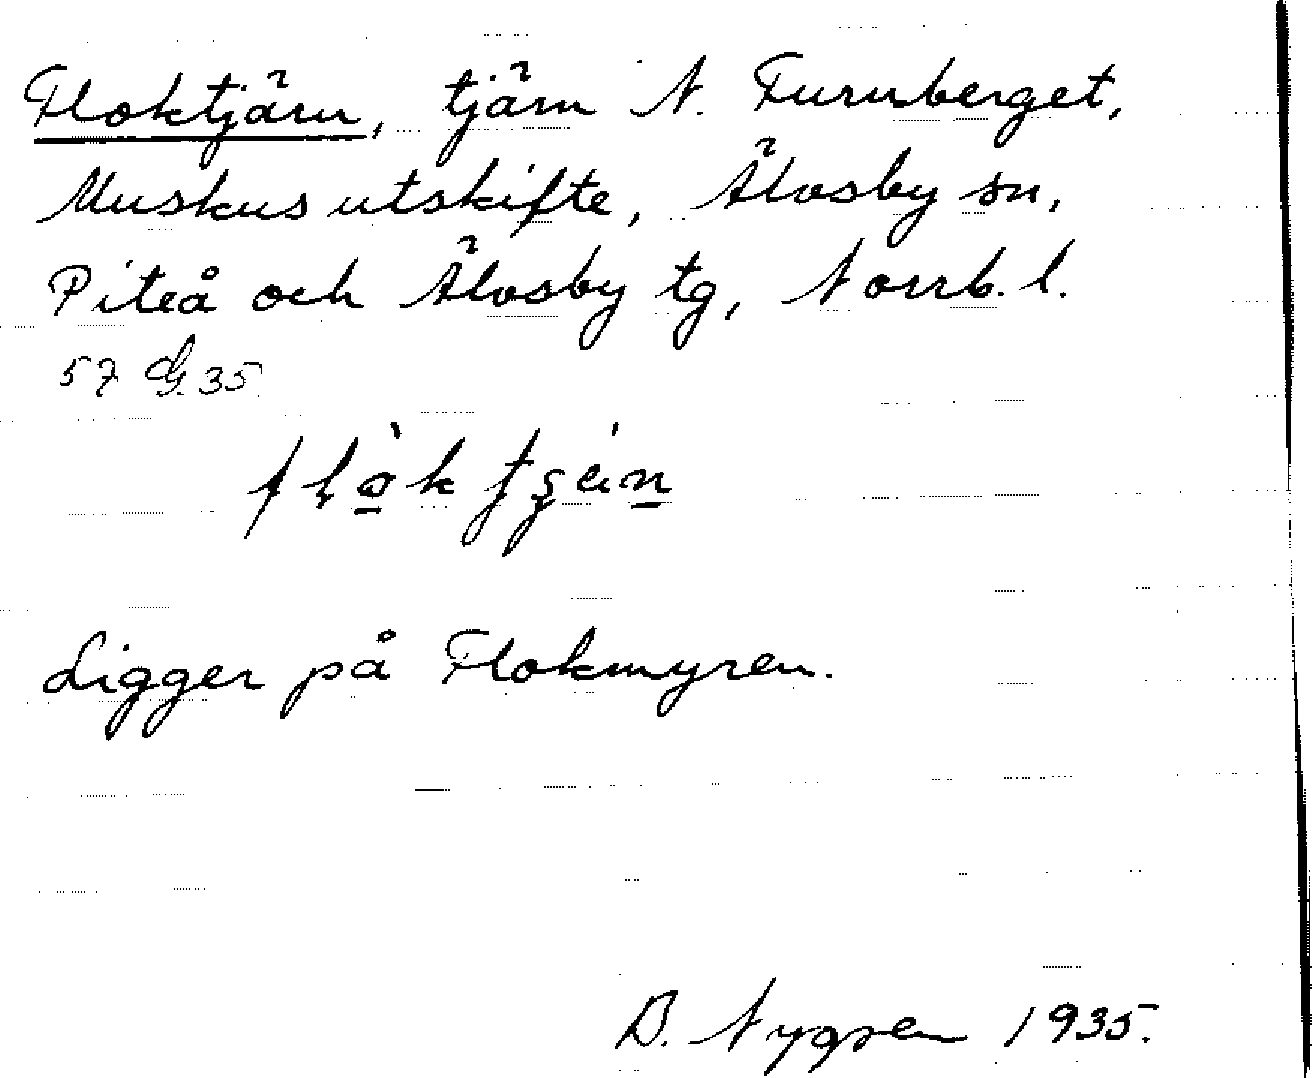 Floktjärn, tjärn N. Furuberget,
Muskus utskifte, Älvsby sn,
Piteå och Älvsby tg, Norrb. l.
57 G. 35.
Ligger på Flokmyren.
B. Nygren 1935.